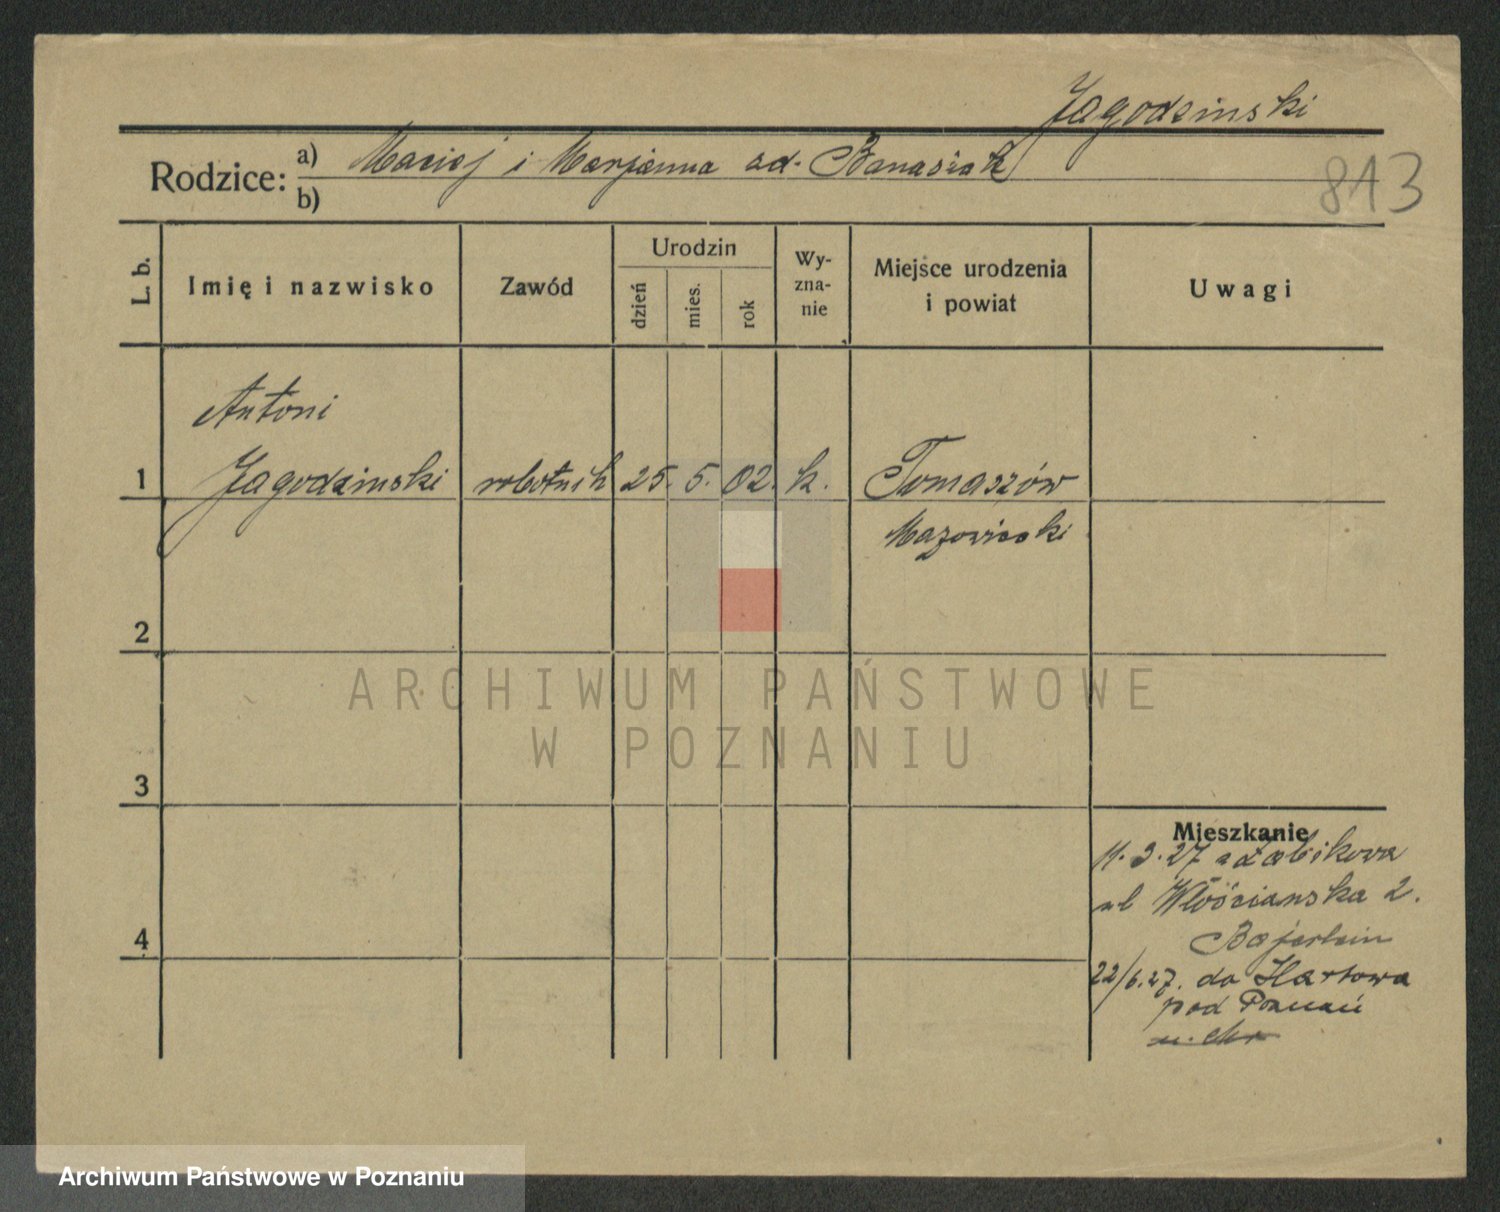 Jagodzinski
Rodzice: a) Maciej i Marjanna zd. Banasiak
b)
813
L. b.
Imię i nazwisko
Zawód
Urodzin
dzień
mies.
rok
Wy-
zna-
nie
Miejsce urodzenia
i powiat
Uwagi
Antoni
1 Jagodzinski robotnik 25. 5. 02. k. Tomaszów
Mazowiecki
2
ARCHIWUM PAŃSTWOWE
W POZNANIU
3
Mieszkanie
11.3.27 z Żabikowa
ul Włościańska 2.
Bajerlein
4
22/6.27. do Hartowa
pod Poznań
Archiwum Państwowe w Poznaniu